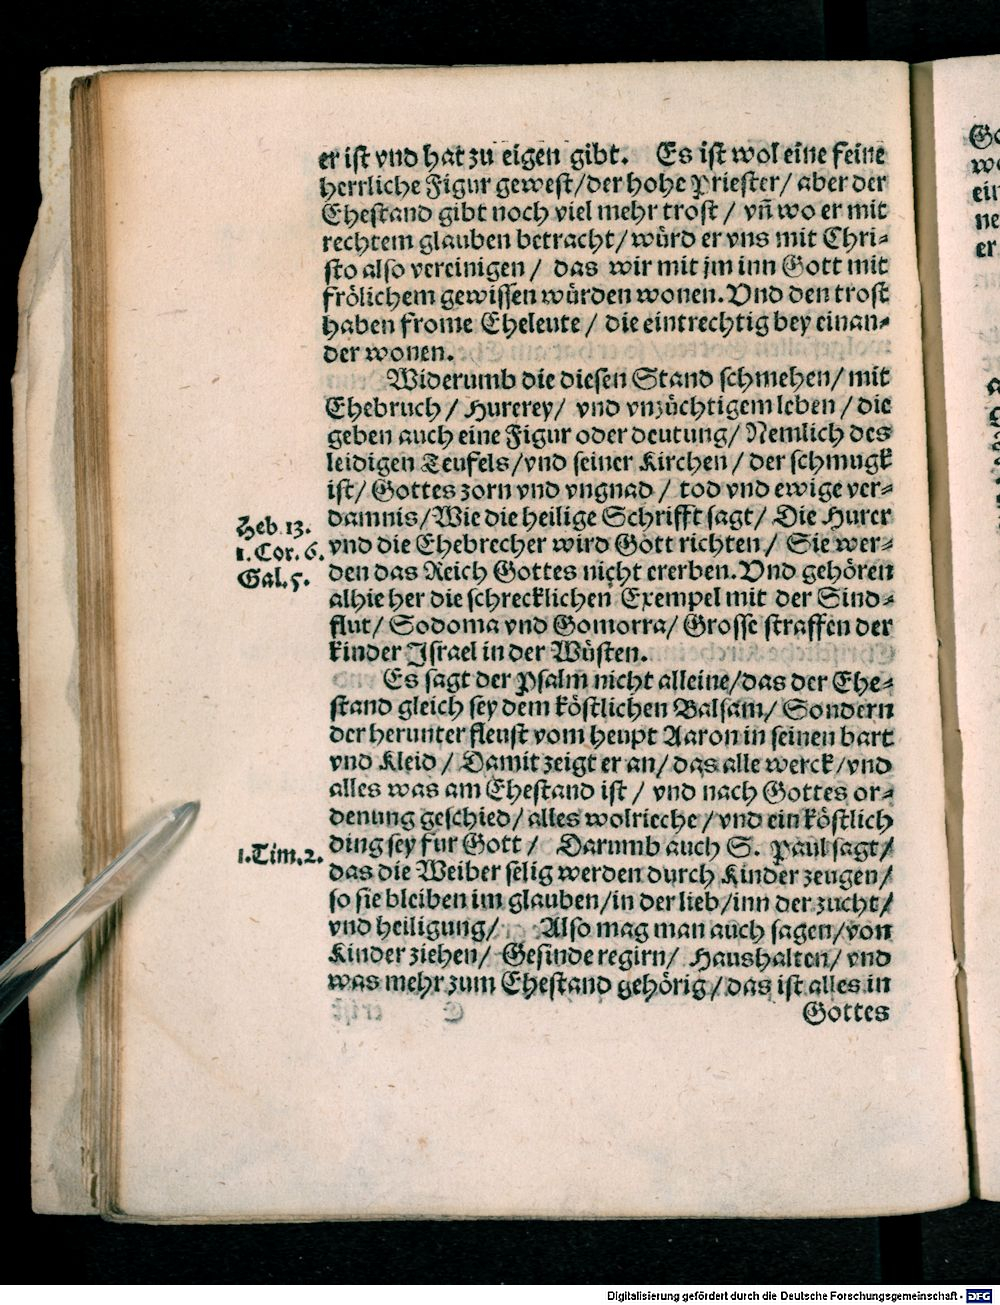 er ist vnd hat zu eigen gibt. Es ist wol eine feine
herrliche Figur gewest/der hohe Priester/ aber der
Ehestand gibt noch viel mehr trost / vñ wo er mit
rechtem glauben betracht/würd er vns mit Chri⸗
sto also vereinigen / das wir mit jm inn Gott mit
frölichem gewissen würden wonen. Vnd den trost
haben frome Eheleute / die eintrechtig bey einan⸗
der wonen.
Widerumb die diesen Stand schmehen/ mit
Ehebruch / Hurerey/ vnd vnzüchtigem leben / die
geben auch eine Figur oder deutung/ Nemlich des
leidigen Teufels/vnd seiner Kirchen / der schmugk
ist/ Gottes zorn vnd vngnad / tod vnd ewige ver⸗
damnis/Wie die heilige Schrifft sagt/ Die Hurer
vnd die Ehebrecher wird Gott richten / Sie wer⸗
den das Reich Gottes nicht ererben. Vnd gehören
alhie her die schrecklichen Exempel mit der Sind⸗
flut/ Sodoma vnd Gomorra/ Grosse straffen der
kinder Israel in der Wüsten.
Heb. 13.
1. Cor. 6.
Gal. 5.
Es sagt der Psalm nicht alleine/das der Ehe⸗
stand gleich sey dem köstlichen Balsam/ Sondern
der herunter fleust vom heupt Aaron in seinen bart
vnd Kleid / Damit zeigt er an/ das alle werck/vnd
alles was am Ehestand ist / vnd nach Gottes or⸗
denung geschied/ alles wolrieche /vnd ein köstlich
ding sey fur Gott / Darumb auch S. Paul sagt/
das die Weiber selig werden durch Kinder zeugen/
so sie bleiben im glauben/in der lieb/inn der zucht/
vnd heiligung/ Also mag man auch sagen/von
Kinder ziehen/ Gesinde regirn/ Haushalten/ vnd
was mehr zum Ehestand gehörig/das ist alles in
1. Tim. 2.
Gottes
Digitalisierung gefördert durch die Deutsche Forschungsgemeinschaft - DFG